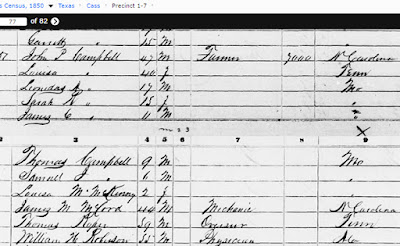 s Census, 1850 Texas Cass Precinct 1-7
77 of 82
Garrett " 15 M
John P Campbell 47 M Farmer 7000 N Carolina
Louisa " 40 f Tenn
Leonidas " 17 M Mo
Sarah " 15 f "
James C " 11 M "
1 2 3 4 5 6 7 8 9
Thomas Campbell 9 M Mo
Samuel J 6 M "
Louisa McKinny 2 f "
James M McCord 44 M Mechanic N Carolina
Thomas 39 M Tenn
William H Robinson 35 M Physician Ala